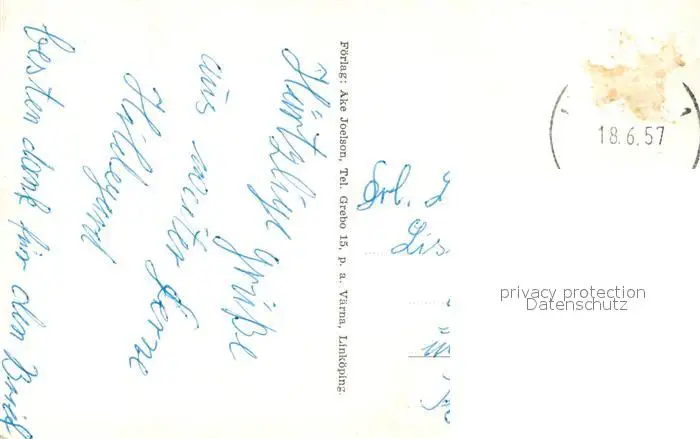 Härtzlige grüße
aus weiter ferne
Hildegard
besten dank für den Brief
Förlag: Åke Joelson, Tel. Grebo 15, p. a. Värna, Linköping.
18.6.57
Frl.
Lis
privacy protection
Datenschutz